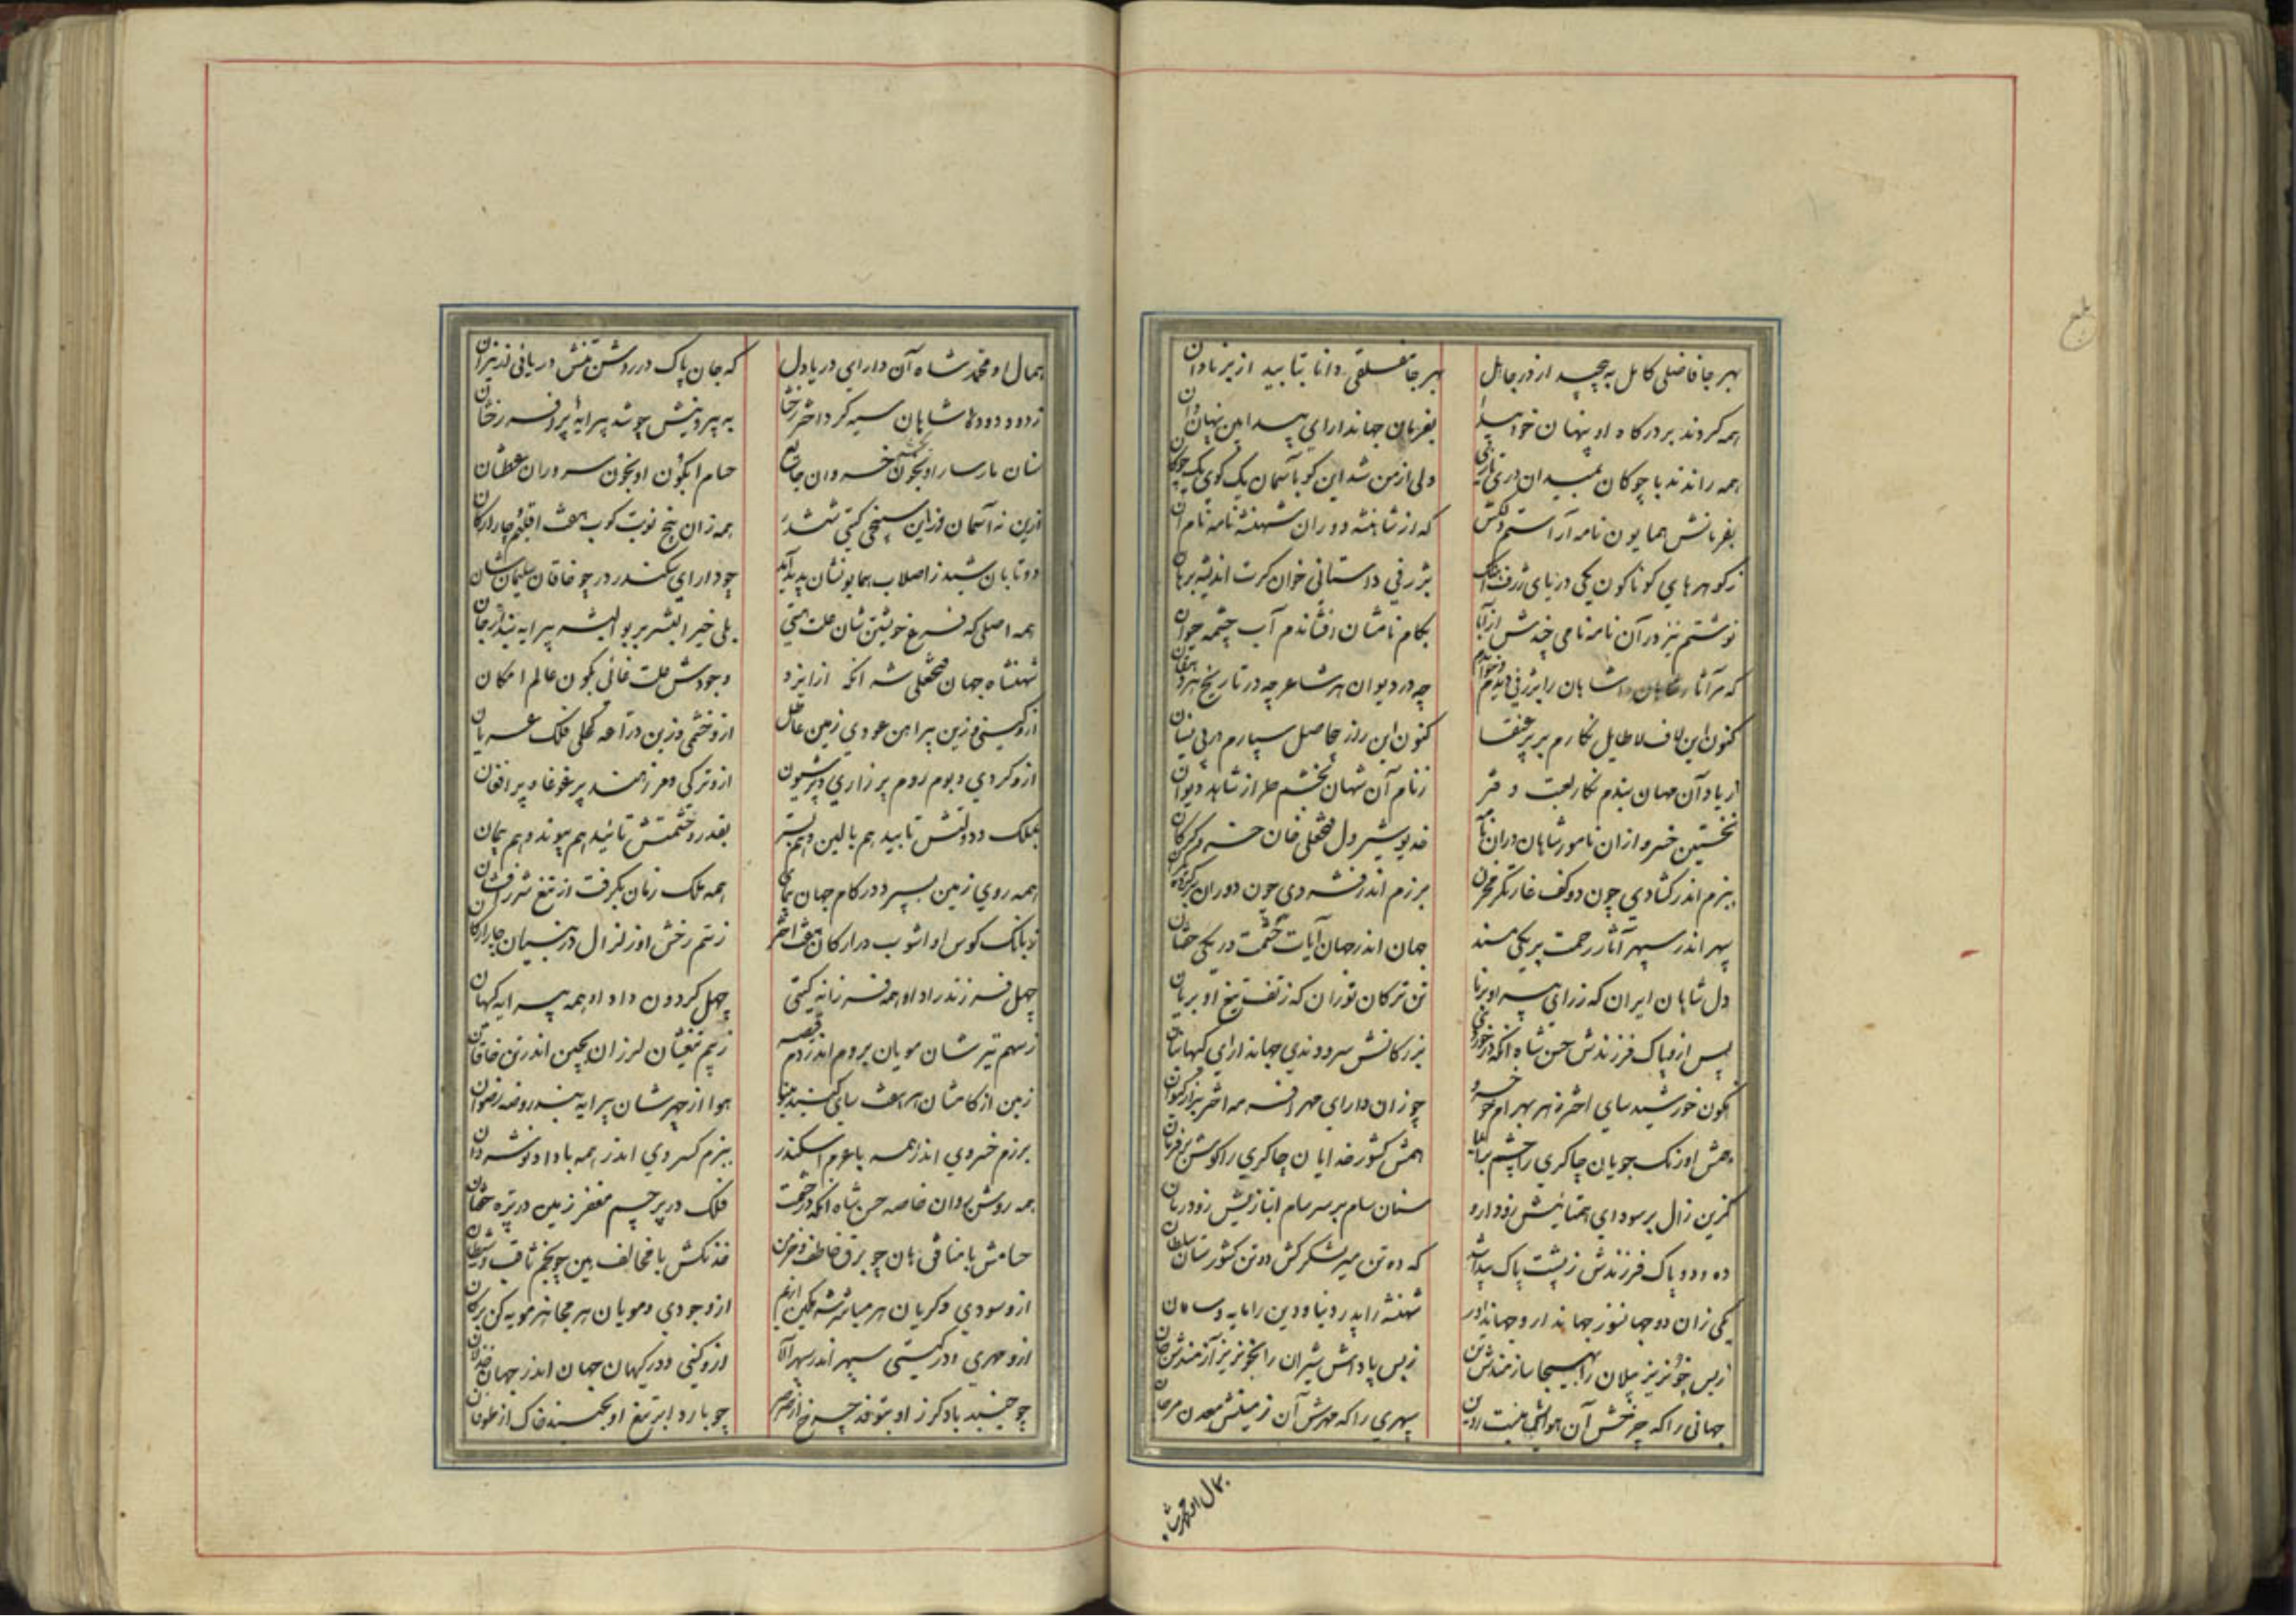 بهر جا فاضلی کامل به پیچید از در جاهل بهر جا مفلقی دانا بتابید از بر نادان
همه کردند بر درگاه او پنهان خود پیدا بفرمان جهاندارای پیدا بین پنهان دان
همه راندند با چوگان بمیدان دری تازی ولی از من شد این گو با آسمان یک گوی یک چوگان
بفرمانش همایون نامه آراستم دلکش که از شاهنشه دوران شهنشه نامه نام آن
ز گوهرهای گوناگون یکی دریای ژرف بژرفی داستانی خوان کرت اندیشه برهان
نوشتم نیز در آن نامه نامی چندش از آبا بکام نامشان افشاندم آب چشمه حیوان
که مر آثار شاهان را بژرفی دیدم و خواندم چه در دیوان هر شاعر چه در تاریخ هر دهقان
کنون این لاف لاطایل نگارم بر پر عنقا کنون این راز بیحاصل سپارم در پی نسیان
از یاد آن مهان بندم نگار لعبت دفتر ز نام آن شهان بخشم طراز شاهد دیوان
نخستین خسرو از آن نامور شاهان دران خدیو شیر دل فتحعلی خان خسرو گرگان
ببزم اندر گشادی چون دو کف غارتگر مخزن برزم اندر فشردی چون دو ران
سپهر اندر سپهر آثار رحمت بر یکی مسند جهان اندر جهان آیات حشمت در یکی خفتان
دل شاهان ایران که ز رای پیر او برنا تن ترکان توران که ز تف تیغ او بریان
پس از و پاک فرزندش حسن شاه آنکه در بزرگانش سرودندی جهاندارای کیهانبان
نگون خورشید سای اختر بهرام خو چو زان دارای مهر افسر مه اختر
همش اورنگ جویان چاکری را چشم بر ایما همش کشور خدایان چاکری را گوش بر فرمان
گزین زال بر سودای همتائیش زود آرد سنان سام بر سر سام انبازیش زود ران
ده و دو پاک فرزندش ز پشت پاک پیدا شد که ده تن میر لشکرکش دو تن کشور ستان سلطان
یکی زان دو جهانسوز جهاندار و جهانداور شهنشه را پدر دنیا و دین را مایه و سامان
ز بس خونریز پیلان را بهیجا سازمندش تن ز بس پاداش شیران را بخونریز آزمندش جان
جهانی را که چرخش آن هوایی هیئت سپهری را که مهرش آن زمینش معدن مرجان
همال او محمد شاه
همال او محمد شاه آن دارای دریا دل که جان پاک در روشن تنش دریائی از نیران
ز دو دوده شاهان سیه کرد اختر رخشان به پیروزیش چو شد پیرایه پرو فسر رخشان
سنان مارسار او بخون خسروان جایع حسام آبگون او بخون سروران عطشان
ازین نه آسمان وز این سپنجی گیتی ششدر همه زان پنج نوبت کوب هفت اقلیم چار ارکان
دو تابان شید ز اصلاب همایونشان پدید آمد چو دارای سکندر در چو خاقان سلیمان شان
همه اصلی که فرع خویشتن شان علت هستی بلی خیر البشر بر بو البشر پیرایه بند از جان
شهنشاه جهان فتحعلی شه آنکه از ایزد وجودش علت غائی بکون عالم امکان
ازو کینی و زین پیراهن عودی زمین عاطل ازو خشمی وزین دراعه کحلی فلک عریان
ازو گردی و بوم روم پر زاری و پر شیون ازو ترکی و مرز هند پر غوغا و پر افغان
بملک و دولتش تایید هم بالین و هم بستر بقدر و حشمتش تائید هم پیوند و هم پیمان
همه روی زمین بسپرد در کام جهان پیمای همه ملک زمان بگرفت از تیغ شررافشان
ز بانگ کوس او آشوب در ارکان هفت اختر ز سم رخش او زلزال در بنیان چار ارکان
چهل فرزند راد او همه فرزانه گیتی چهل گردون داد او همه پیرایه کیهان
ز سهم تیرشان مویان بروم اندر دم قیصر ز بیم تیغشان لرزان بچین اندر تن خاقان
زمین از کامشان همسای گنبد مینا هوا از چهرشان پیرایه بند روضه رضوان
برزم خسروی اندر همه با عزم اسکندر ببزم کسروی اندر همه با داد نوشروان
همه روشن روان خاصه حسن شاه آنکه در حشمت فلک در پرچم مغفر زمین در پره خفتان
حسامش با منافق هان چو برق خاطف و خرمن خدنگش با مخالف بین چو نجم ثاقب و شیطان
ازو سودی و گریان هر مباشر شه ازو جودی و مویان هر مجاهز مویه کن بر کان
ازو مهری و در گیتی سپهر اندر سپهر آلا ازو کینی و در کیهان جهان اندر جهان خذلان
چو جنبد باد گرز او بتوفد چرخ از صرصر چو بارد ابر تیغ او بجنبد خاک از طوفان